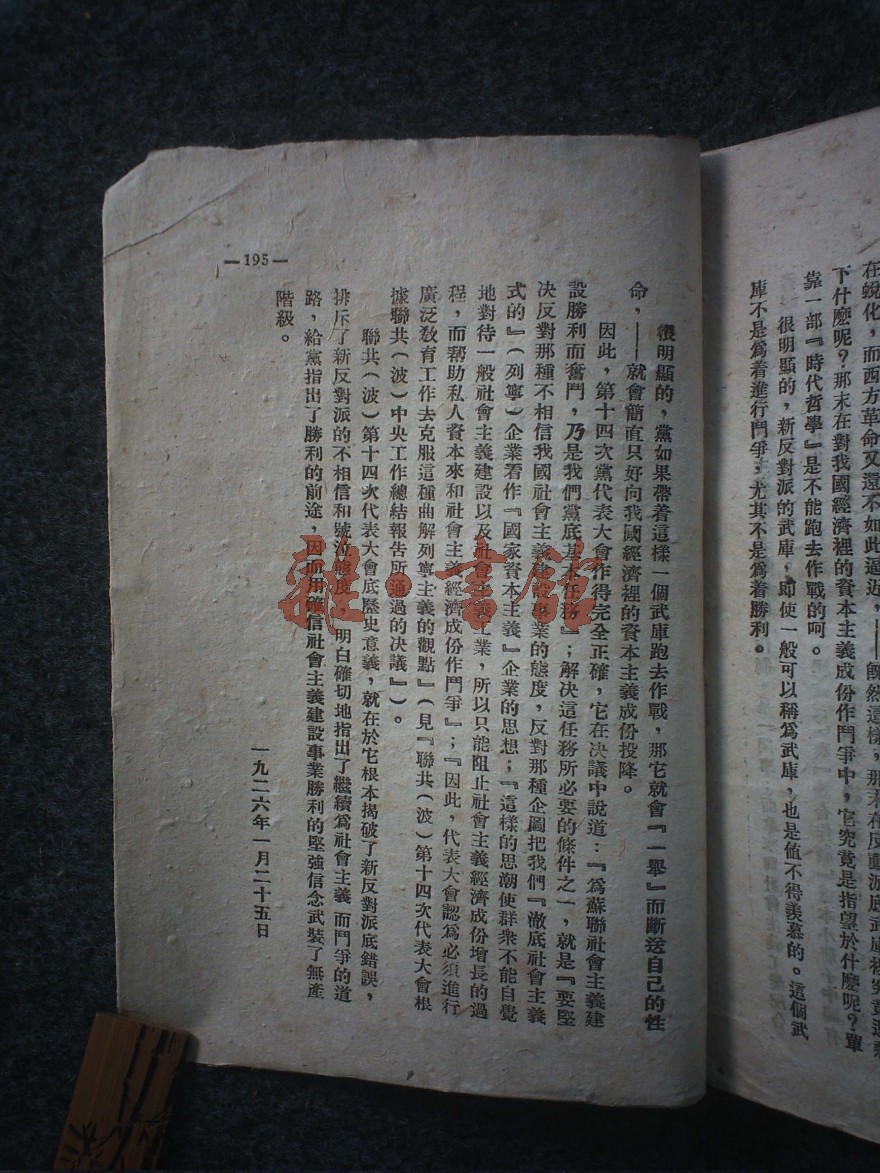 在蛻化，而西方革命又還不如此逼近，——既然這樣，那末在反動派底武庫裡究竟還剩
下什麽呢？那末在對我國經濟裡的資本主義成份作鬥爭中，它究竟是指望於什麽呢？單
靠一部『時代哲學』是不能跑去作戰的呵。
很明顯的，新反對派的武庫，即使一般可以稱爲武庫，也是値不得羨慕的。這個武
庫不是爲着進行鬥爭；尤其不是爲着勝利。
很明顯的，黨如果帶着這樣一個武庫跑去作戰，那它就會『一舉』而斷送自己的性
命，——就會簡直只好向我國經濟裡的資本主義成份投降。
因此，第十四次黨代表大會作得完全正確，它在決議中說道：『爲蘇聯社會主義建
設勝利而奮鬥，乃是我們黨底基本任務』；解決這任務所必要的條件之一，就是『要堅
決反對那種不相信我國社會主義建設事業的態度，反對那種企圖把我們『澈底社會主義
式的』（列寧）企業看作『國家資本主義』企業的思想；『這樣的思潮使群衆不能自覺
地對待一般社會主義建設以及社會主義工業，所以只能阻止社會主義經濟成份增長的過
程，而帮助私人資本來和社會主義經濟成份作鬥爭』；『因此，代表大會認爲必須進行
廣泛敎育工作去克服這種曲解列寧主義的觀點』（見『聯共（波）第十四次代表大會根
據聯共（波）中央工作總結報告所通過的决議』）。
聯共（波）第十四次代表大會底歷史意義，就在於它根本揭破了新反對派底錯誤，
排斥了新反對派的不相信和號泣態度，明白確切地指出了繼續爲社會主義而鬥爭的道
路，給黨指出了勝利的前途，因而用確信社會主義建設事業勝利的堅強信念武裝了無產
階級。
一九二六年一月二十五日
—195—
雜·書館